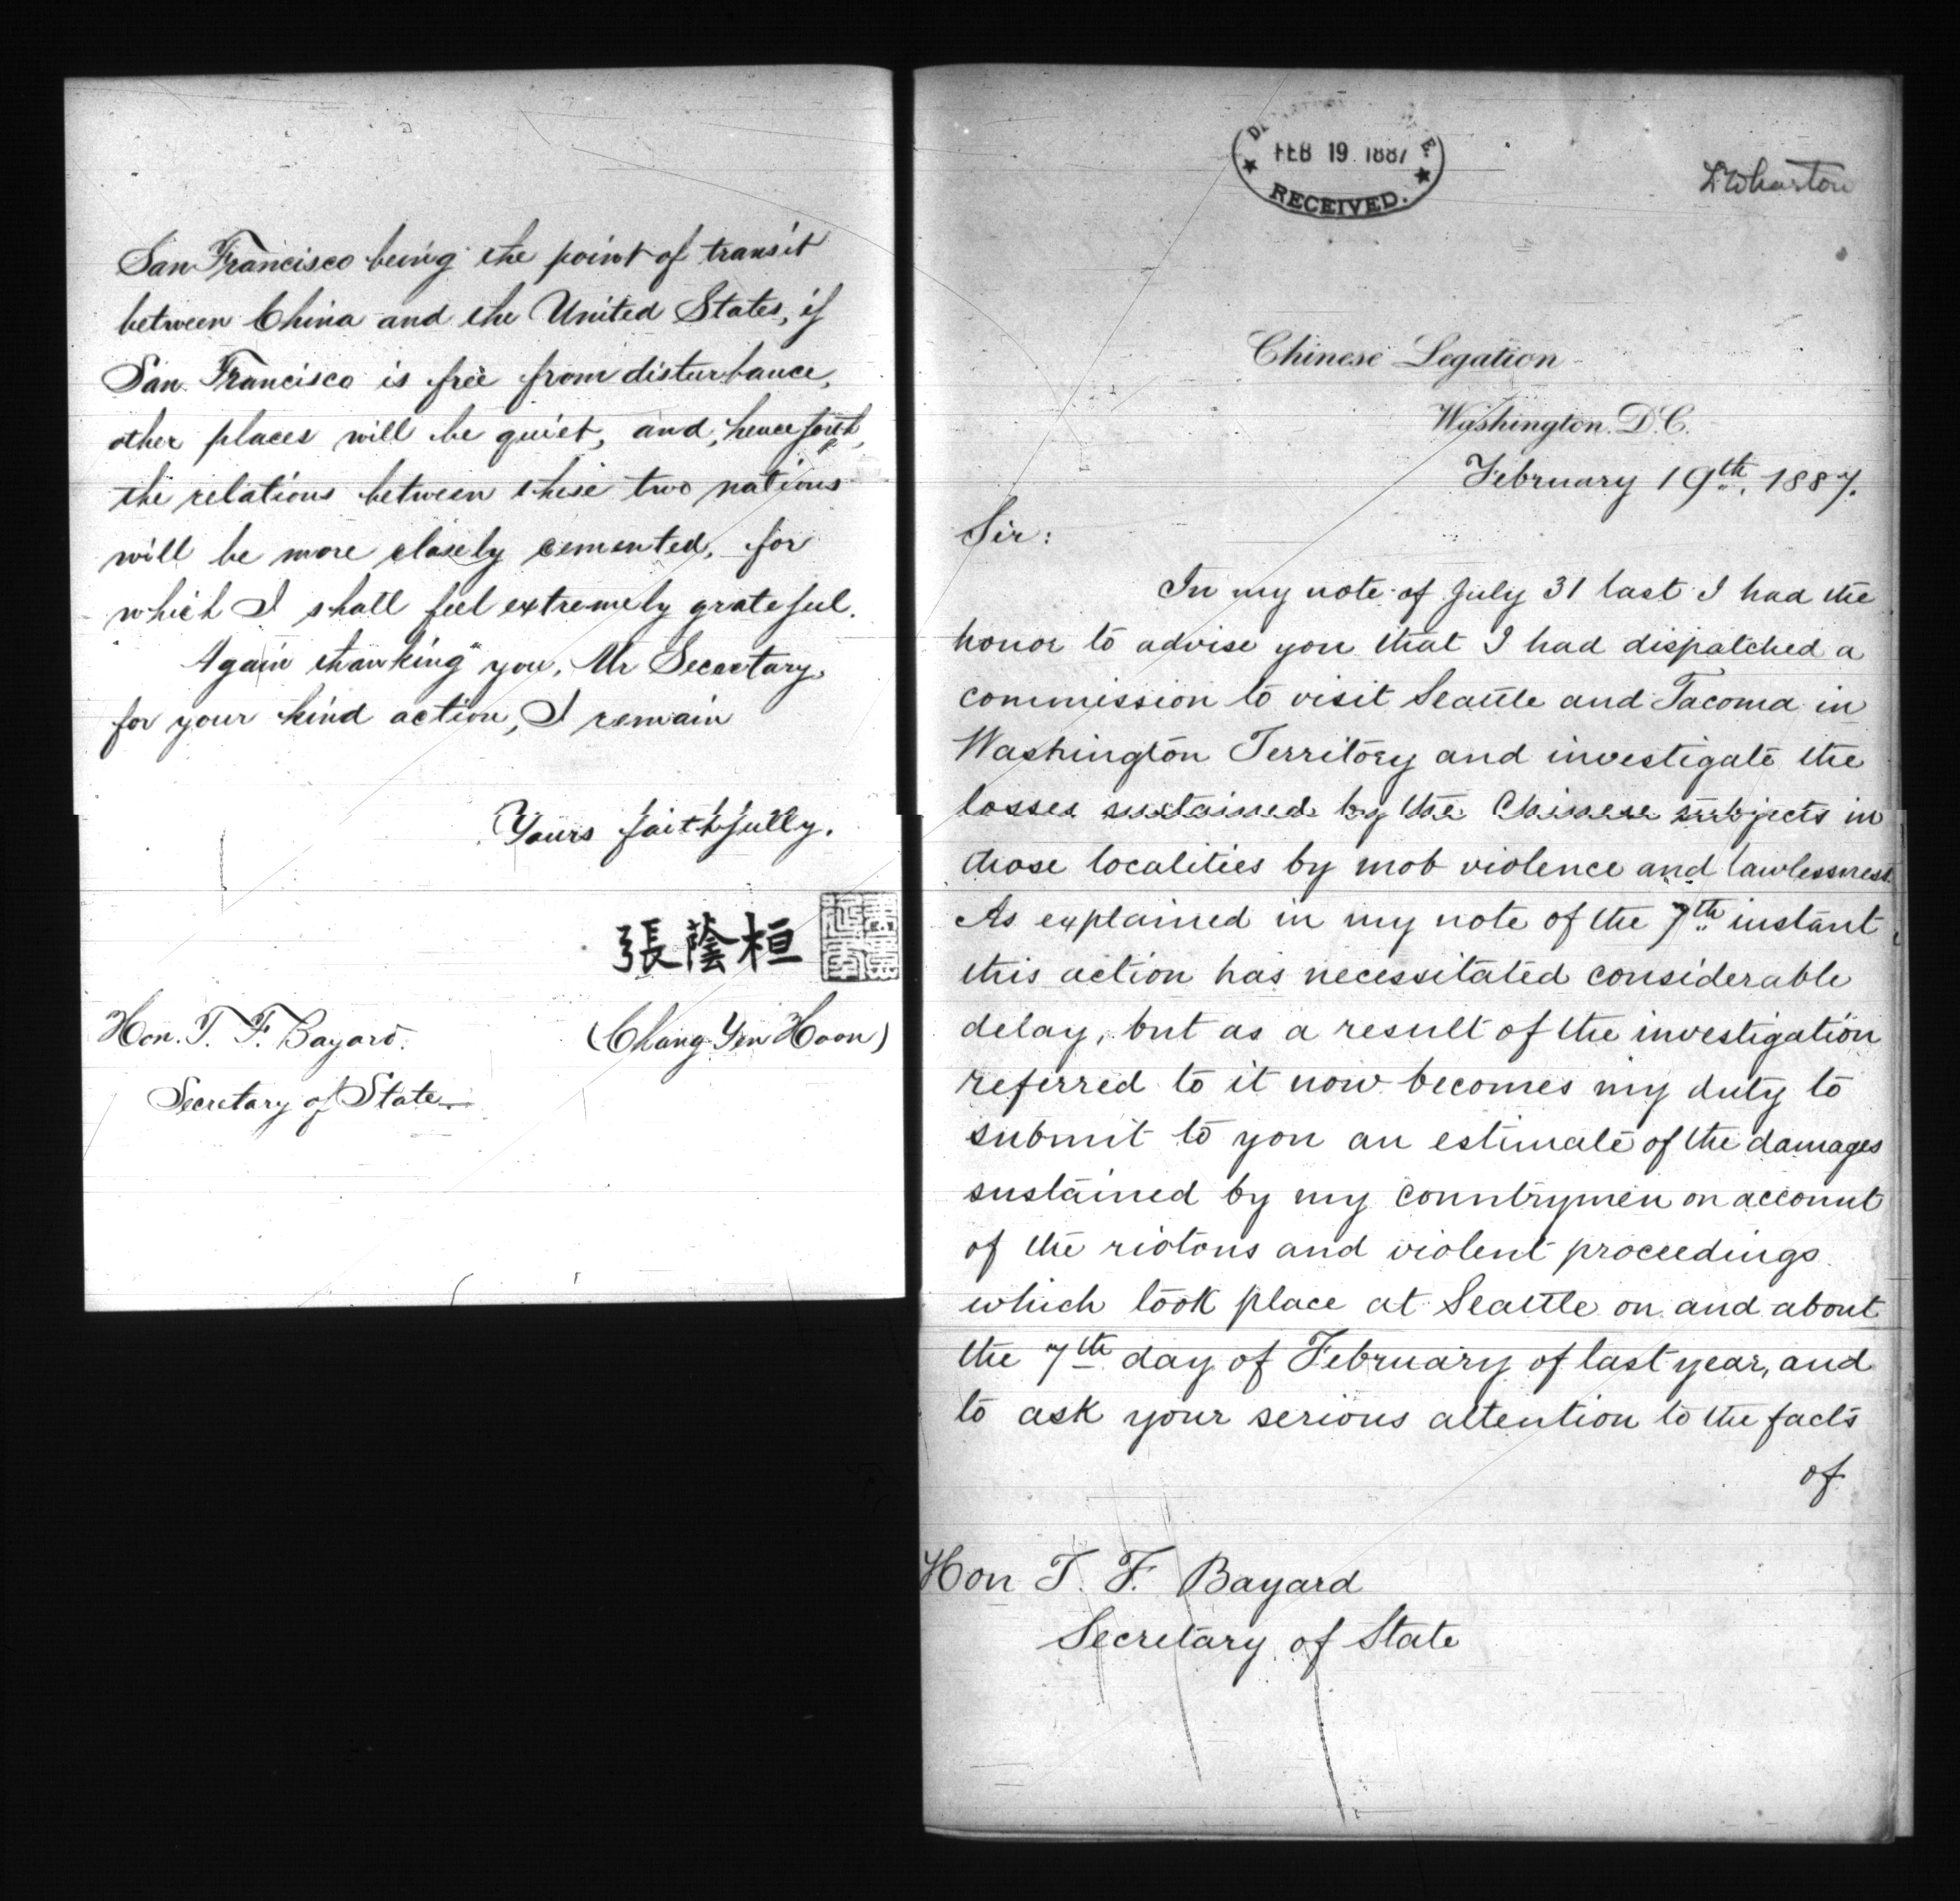 San Francisco being the point of transit
between China and the United States, if
San Francisco is free from disturbance,
other places will be quiet, and, henceforth,
the relations between these two nations
will be more closely cemented, for
which I shall feel extremely grateful.
Again thanking you, Mr Secretary,
for your kind action, I remain
Yours faithfully,
張蔭桓
Hon. T. F. Bayard.
(Chang Yen Hoon)
Secretary of State
FEB 19 1887
RECEIVED.
Wharton
Chinese Legation
Washington. D.C.
February 19th, 1887.
Sir:
In my note of July 31 last I had the
honor to advise you that I had dispatched a
commission to visit Seattle and Tacoma in
Washington Territory and investigate the
losses sustained by the Chinese subjects in
those localities by mob violence and lawlessness.
As explained in my note of the 7th instant
this action has necessitated considerable
delay, but as a result of the investigation
referred to it now becomes my duty to
submit to you an estimate of the damages
sustained by my countrymen on account
of the riotous and violent proceedings
which took place at Seattle on and about
the 7th day of February of last year, and
to ask your serious attention to the facts
of
Hon T. F. Bayard
Secretary of State